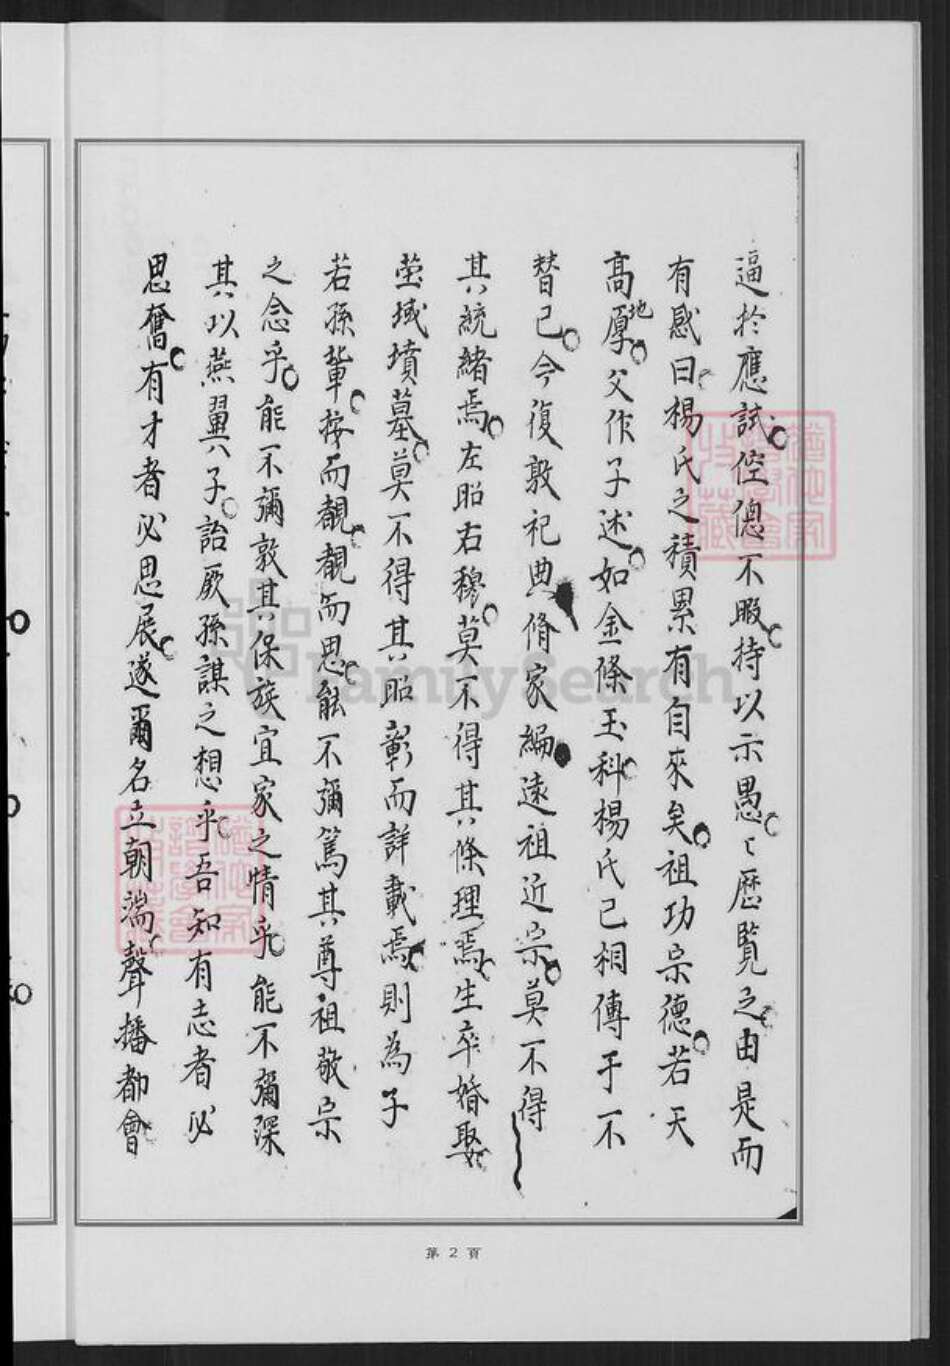 逼於應試倥傯不暇持以示愚〻歷覽之由是而
有感曰楊氏之積累有自來矣祖功宗德若天
高地厚父作子述如金條玉科楊氏已相傳于不
替已今復敦祀典脩家編遠祖近宗莫不得
其統緒焉左昭右穆莫不得其條理焉生卒婚娶
塋域墳墓莫不得其昭彰而詳載焉則為子
若孫輩按而覩覩而思能不彌篤其尊祖敬宗
之念乎能不彌敦其保族宜家之情乎能不彌深
其以燕翼子詒厥孫謀之想乎吾知有志者必
思奮有才者必思展遂爾名立朝端聲播都會
第2頁
FamilySearch